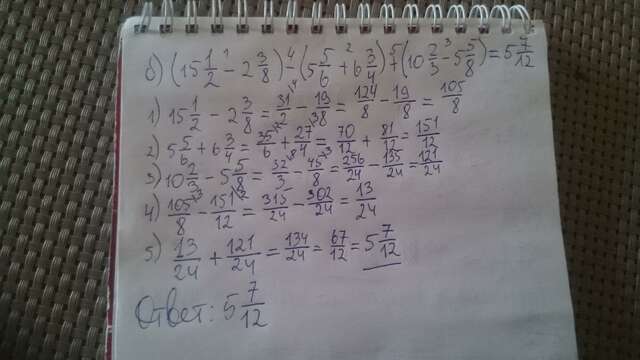 б) (15 1/2 - 2 3/8) - (5 5/6 + 6 3/4) + (10 2/3 - 5 5/8) = 5 7/12
1) 15 1/2 - 2 3/8 = 31/2 - 19/8 = 124/8 - 19/8 = 105/8
2) 5 5/6 + 6 3/4 = 35/6 + 27/4 = 70/12 + 81/12 = 151/12
3) 10 2/3 - 5 5/8 = 32/3 - 45/8 = 256/24 - 135/24 = 121/24
4) 105/8 - 151/12 = 315/24 - 302/24 = 13/24
5) 13/24 + 121/24 = 134/24 = 67/12 = 5 7/12
Ответ: 5 7/12